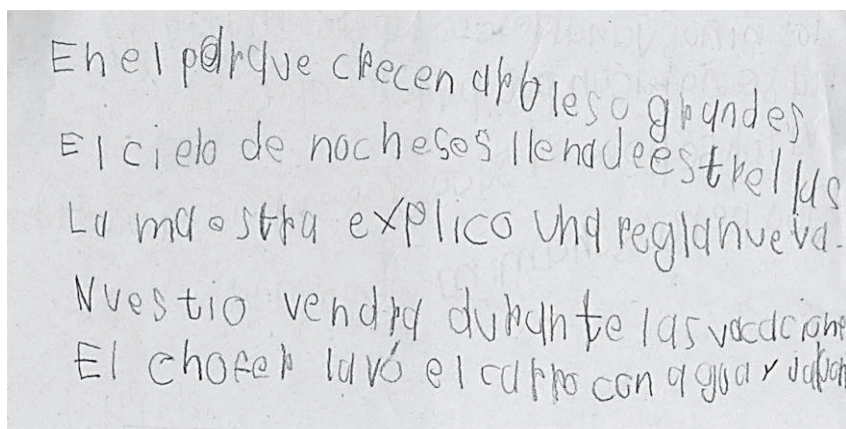 En el parque crecen arboleso grandes
El cielo de nocheses llenadeestrellas
La maostra explico una reglanueva.
Nuestio vendra durante las vacacione
El chofer lavó el carro con agua y jabon